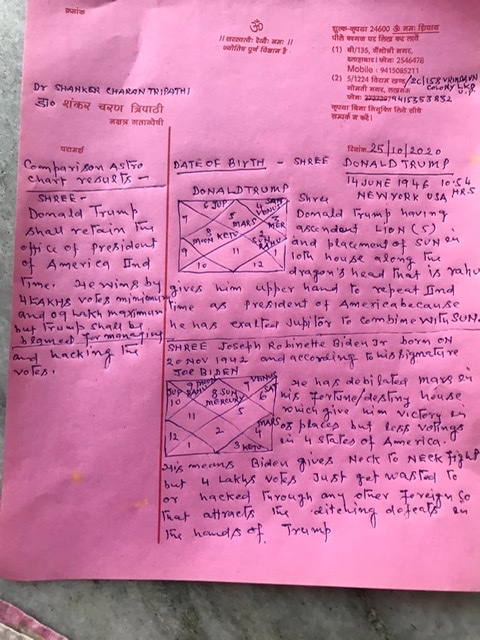 क्रमांक
ॐ
।। सरस्वत्यैः देव्यैः नमः ।।
ज्योतिष पूर्ण विज्ञान है
शुल्क-कृपया 24600 ॐ नमः शिवाय
पीले कागज पर लिख कर लायें
(1) बी/135, नैनीताल नगर,
इलाहाबाद। फोन: 2546478
Mobile : 9415085211
(2) 5/1224 विराम खण्ड/2C/158 VRINDAVN
गोमती नगर, लखनऊ COLONY LKO
फोन: 9415353832 U.P.
कृपया बिना नियुक्ति लिये सीधे
सम्पर्क न करें।
DY SHANKER CHARAN TRIPATHI
डा० शंकर चरण त्रिपाठी
नक्षत्र गतान्वेषी
परामर्श
दिनांक 25/10/2020
Comparison Astro
Chart results -
SHREE -
Donald Trump
shall retain the
office of president
of America IInd
Time. He wins by
4 LAKHS votes minimum
and 09 Lakh maximum
but Trump shall be
blamed for managing
and hacking the
votes.
DATE OF BIRTH - SHREE DONALD TRUMP
14 JUNE 1946 10.54 HRS
NEW YORK USA
DONALD TRUMP
6 JUP
4 SAT VENUS
7
5 MARS
3 MER
8 MOON KETU
2 SUN RAHU
9
11
1
10
12
Shree
Donald Trump having
ascendent LION (5)
and placement of SUN in
10th house along the
dragon's head that is rahu
gives him upper hand to repeat IInd
time as President of America because
he has exalted Jupitor to combine with SUN.
SHREE Joseph Robinette Biden Jr born ON
20 NOV 1942 and according to his signature
JOE BIDEN
9 MOON
7 VENUS
JUP RAHU
10
8 SUN MERCURY
6 SAT
11
5
12
2
4 MARS
1
3 KETU
He has debilated mars in
his fortune/desting house
which give him victory in
of places but less votings
in 4 states of America.
This means Biden gives Neck to NECK fight
but 4 Lakhs votes Just get wasted to
or hacked through any other Foreign So
that attracts the ditching defeats in
the hands of Trump